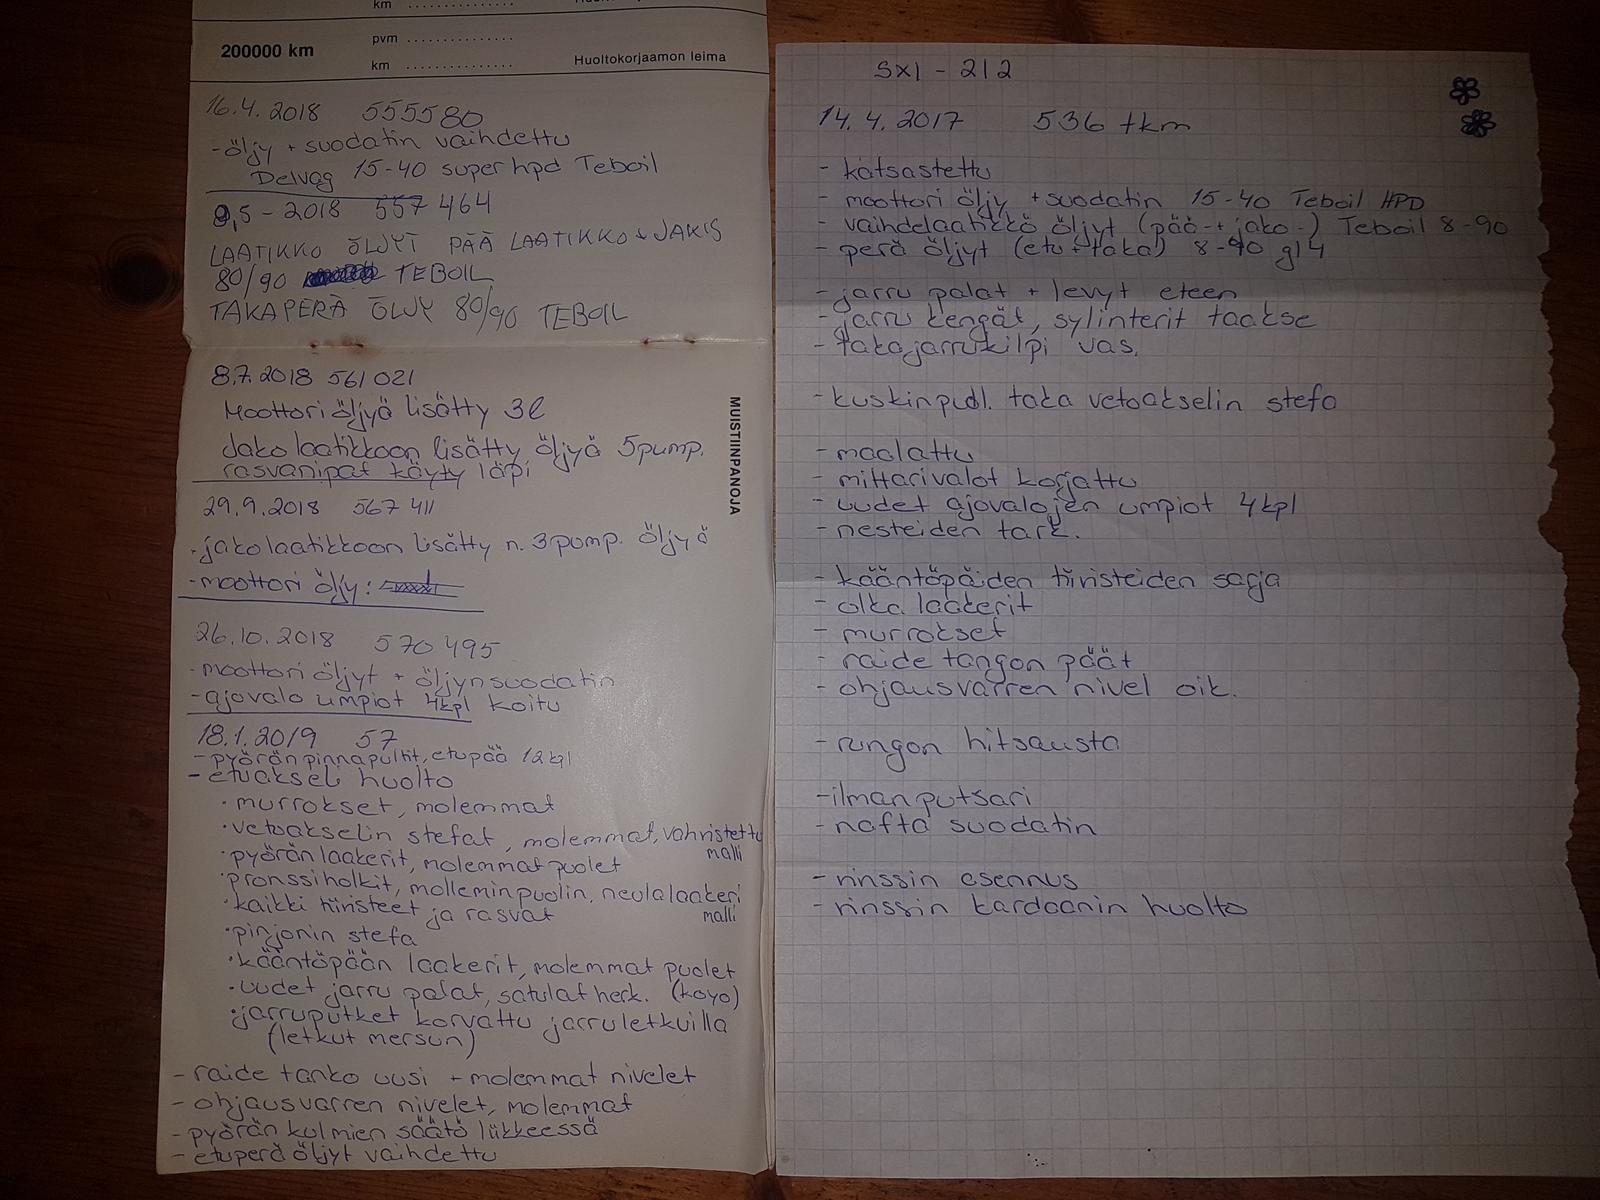 km ...............
200000 km
pvm ...............
km ...............
Huoltokorjaamon leima
16.4.2018 555580
- öljy + suodatin vaihdettu
Delvag 15-40 super hpd Teboil
9,5 - 2018 557 464
LAATIKKO ÖLJYT PÄÄ LAATIKKO + JAKIS
80/90 TEBOIL
TAKAPERÄ ÖLJY 80/90 TEBOIL
8.7.2018 561 021
Moottori öljyä lisätty 3l
Jako laatikkoon lisätty öljyä 5pump.
rasvanipat käyty läpi
29.9.2018 567 411
- jakolaatikkoon lisätty n. 3 pump. öljyä
- moottori öljy:
26.10.2018 570 495
- moottori öljyt + öljynsuodatin
- ajovalo umpiot 4kpl koitu
18.1.2019 57
- pyörän pinnapultit, etupää 12kpl
- etuakseli huolto
• murrokset, molemmat
• vetoakselin stefat, molemmat, vahvistettu
malli
• pyörän laakerit, molemmat puolet
• pronssiholkit, molleminpuolin, neulalaakeri
malli
• kaikki tiivisteet ja rasvat
• pinjonin stefa
• kääntöpään laakerit, molemmat puolet
• uudet jarru palat, satulat herk. (koyo)
• jarruputket korvattu jarruletkuilla
(letkut mersun)
- raide tanko uusi + molemmat nivelet
- ohjausvarren nivelet, molemmat
- pyörän kulmien säätö liikkeessä
- etuperä öljyt vaihdettu
MUISTIINPANOJA
SXI - 212
14.4.2017 536 tkm
- katsastettu
- moottori öljy + suodatin 15-40 Teboil HPD
- vaihdelaatikko öljyt (pää- + jako-) Teboil 8-90
- perä öljyt (etu + taka) 8-90 gl4
- jarru palat + levyt eteen
- jarru kengät, sylinterit taakse
- takajarrukilpi vas.
- kuskinpuol. taka vetoakselin stefa
- maalattu
- mittarivalot korjattu
- uudet ajovalojen umpiot 4kpl
- nesteiden tark.
- kääntöpäiden tiivisteiden sarja
- olka laakerit
- murrokset
- raide tangon päät
- ohjausvarren nivel oik.
- rungon hitsausta
- ilman putsari
- nafta suodatin
- vinssin asennus
- vinssin kardaanin huolto